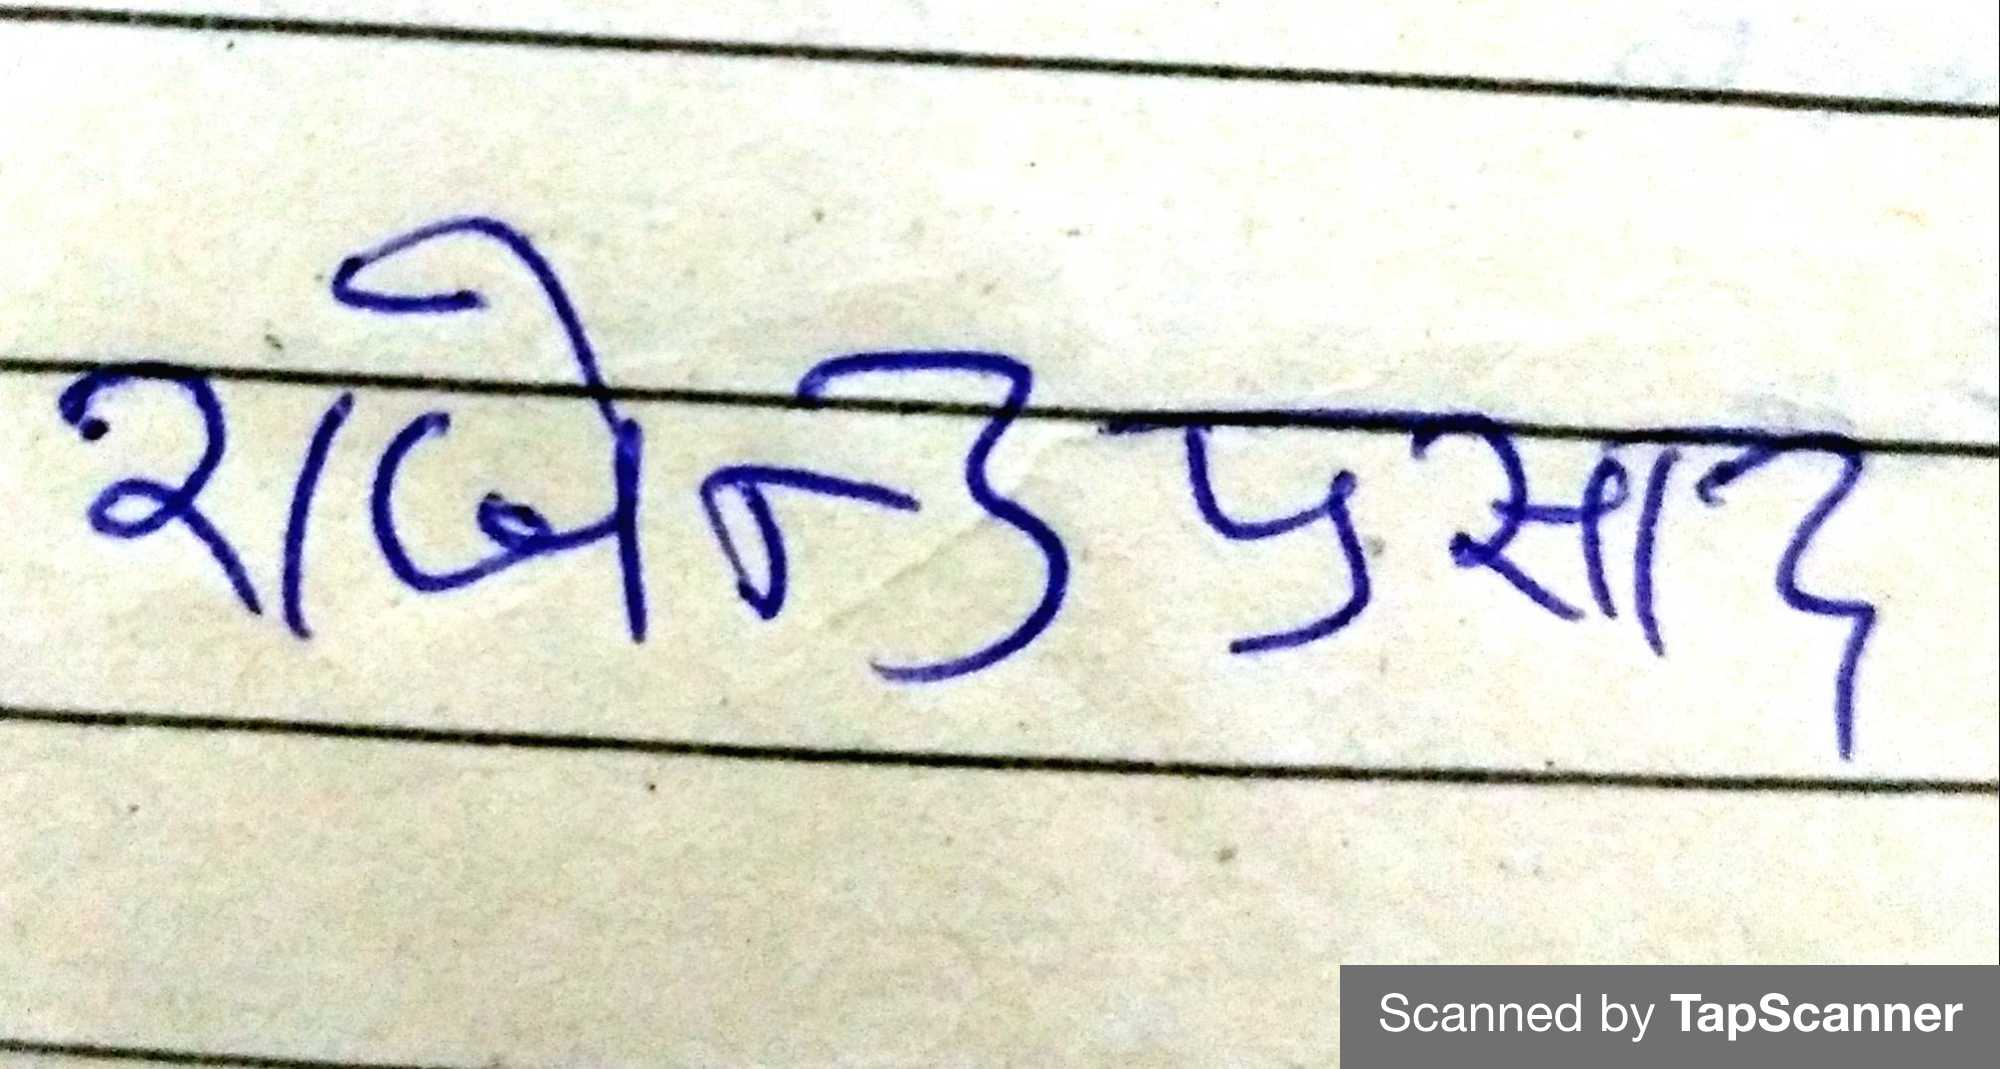 राजेन्द्र प्रसाद
Scanned by TapScanner